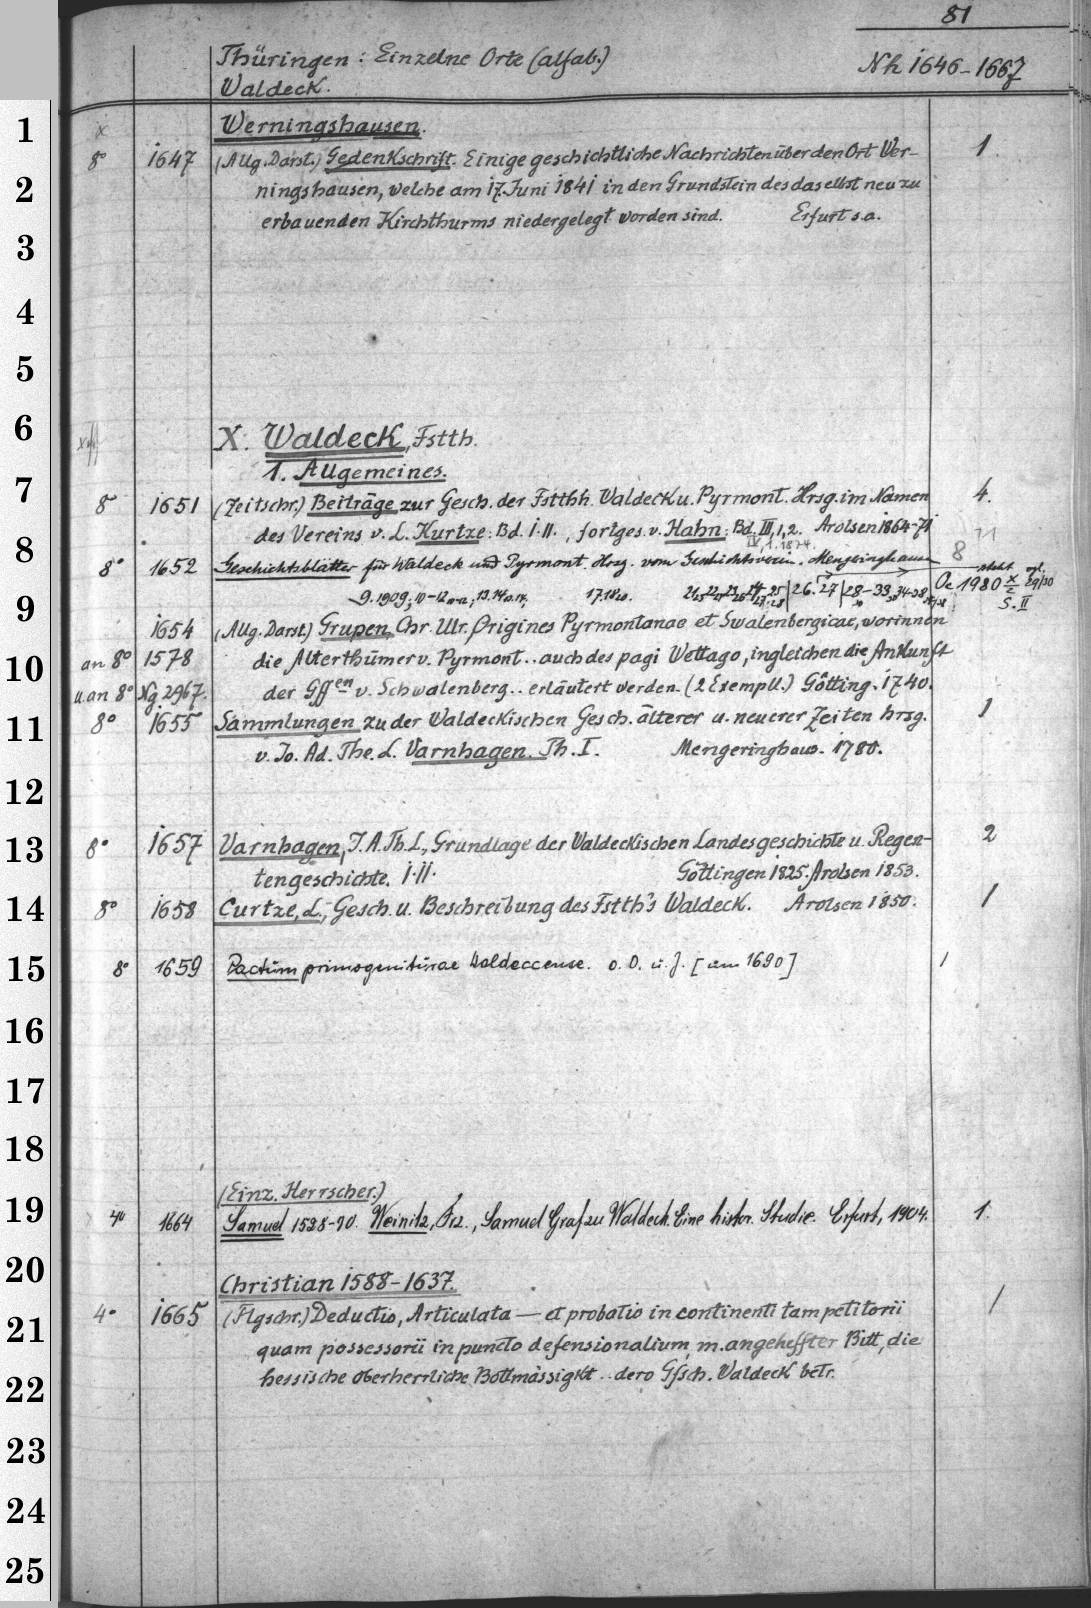 81
Thüringen : Einzelne Orte (alfab.) Nh 1646-1667
Waldeck.
1
x Werningshausen.
8° 1647 (Allg. Darst.) Gedenkschrift. Einige geschichtliche Nachrichten über den Ort Wer- 1
2 ningshausen, welche am 17. Juni 1841 in den Grundstein des daselbst neu zu
erbauenden Kirchthurms niedergelegt worden sind. Erfurt s.a.
3
4
5
6 X. Waldeck, Fstth.
1. Allgemeines.
7
8° 1651 (Zeitschr.) Beiträge zur Gesch. der Fstthh. Waldeck u. Pyrmont. Hrsg. im Namen 4.
des Vereins v. L. Kurtze: Bd. I-II., fortges. v. Hahn: Bd. III,1,2. Arolsen 1864-71
IV, 1. 1874
8
8° 1652 Geschichtsblätter für Waldeck und Pyrmont. Hrsg. vom Geschichtsverein. Mengeringhausen 8
9. 1909; 10-12; 13.14; 17.18 26.27 28-33 34-38 Oc 1980 S. II
9
1654 (Allg. Darst.) Grupen, Chr. Ulr. Origines Pyrmontanae et Swalenbergicae, worinnen
10 an 8° 1578 die Alterthümer v. Pyrmont.. auch des pagi Wettago, ingleichen die Ankunft
u. an 8° Ng 2967. der Gffen v. Schwalenberg.. erläutert werden. (2 Exempll.) Götting. 1740.
11 8° 1655 Sammlungen zu der Waldeckischen Gesch. älterer u. neuerer Zeiten hrsg. 1
v. Jo. Ad. The. L. Varnhagen. Th. I. Mengeringhaus. 1780.
12
13 8° 1657 Varnhagen, J. A. Th. L., Grundlage der Waldeckischen Landesgeschichte u. Regen- 2
tengeschichte. I-II. Göttingen 1825. Arolsen 1853.
14 8° 1658 Curtze, L., Gesch. u. Beschreibung des Fstth's Waldeck. Arolsen 1850. 1
15 8° 1659 Pactum primogeniturae Waldeccense. o. O. u. J. [um 1690] 1
16
17
18
(Einz. Herrscher.)
19 4° 1664 Samuel 1528-70. Weinitz, Frz., Samuel Graf zu Waldeck. Eine histor. Studie. Erfurt, 1904. 1.
20
Christian 1588-1637.
4° 1665 (Flgschr.) Deductio, Articulata — et probatio in continenti tam petitorii 1
21 quam possessorii in puncto defensionalium, m. angeheffter Bitt, die
22 hessische oberherrliche Bottmässigkt .. dero Gfsch. Waldeck betr.
23
24
25